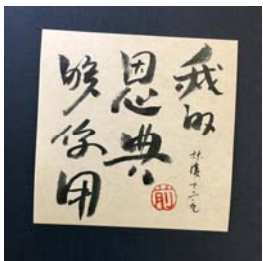 我的
恩典
够你用
林後十二九
前